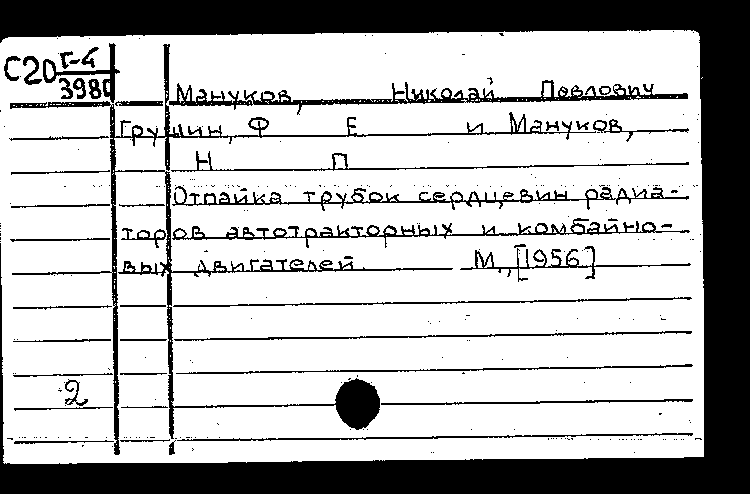 С20 Г-4
398
Мануков, Николай Павлович
Грушин, Ф Е и Мануков,
Н П
Отпайка трубок сердцевин радиа-
торов автотракторных и комбайно-
вых двигателей. М., [1956]
2